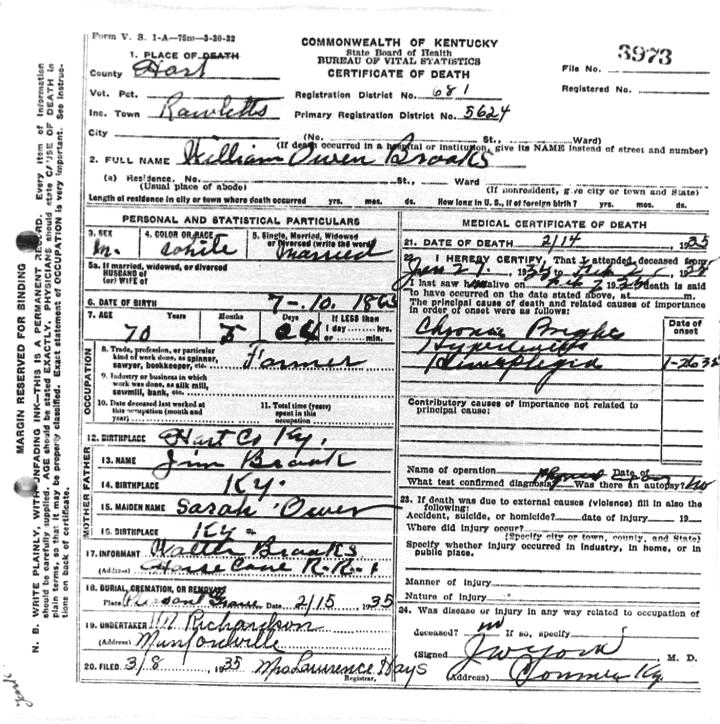 Form V. S. 1-A—75m—3-30-32
COMMONWEALTH OF KENTUCKY
State Board of Health
BUREAU OF VITAL STATISTICS
CERTIFICATE OF DEATH
3973
File No.
Registered No.
1. PLACE OF DEATH
County Hart
Vot. Pct.
Inc. Town Rowletts
City
Registration District No. 681
Primary Registration District No. 5624
(No. St., Ward)
(If death occurred in a hospital or institution, give its NAME instead of street and number)
2. FULL NAME William Owen Brooks
(a) Residence. No. St., Ward
(Usual place of abode) (If nonresident, give city or town and State)
Length of residence in city or town where death occurred yrs. mos. ds. How long in U. S., if of foreign birth? yrs. mos. ds.
PERSONAL AND STATISTICAL PARTICULARS
3. SEX 4. COLOR OR RACE 5. Single, Married, Widowed
or Divorced (write the word)
m. white Married
5a. If married, widowed, or divorced
HUSBAND of
(or) WIFE of
6. DATE OF BIRTH 7-10.
7. AGE Years Months Days If LESS than
1 day hrs.
or min.
70
OCCUPATION
8. Trade, profession, or particular
kind of work done, as spinner,
sawyer, bookkeeper, etc. Farmer
9. Industry or business in which
work was done, as silk mill,
sawmill, bank, etc.
10. Date deceased last worked at
this occupation (month and
year)
11. Total time (years)
spent in this
occupation
12. BIRTHPLACE Hart Co Ky.
FATHER
13. NAME Jim Brook
14. BIRTHPLACE Ky.
MOTHER
15. MAIDEN NAME Sarah Owen
16. BIRTHPLACE Ky
17. INFORMANT Walter Brooks
(Address) Horse Cave R.R.1
18. BURIAL, CREMATION, OR REMOVAL
Place Pleasant Grove Date 2/15 1935
19. UNDERTAKER Richardson
(Address) Munfordville
20. FILED 3/8 1935 Mrs Lawrence Hays
Registrar.
MEDICAL CERTIFICATE OF DEATH
21. DATE OF DEATH 2/14 1935
22. I HEREBY CERTIFY, That I attended deceased from
I last saw alive on death is said
to have occurred on the date stated above, at m.
The principal cause of death and related causes of importance
in order of onset were as follows:
Date of
onset
Chronic Brights
Hemiplegia
Contributory causes of importance not related to
principal cause:
Name of operation Date of
What test confirmed diagnosis? Was there an autopsy? No
23. If death was due to external causes (violence) fill in also the
following:
Accident, suicide, or homicide? date of injury 19
Where did injury occur?
(Specify city or town, county, and State)
Specify whether injury occurred in industry, in home, or in
public place.
Manner of injury
Nature of injury
24. Was disease or injury in any way related to occupation of
deceased? no If so, specify
(Signed) J W York M. D.
(Address) Ky.
MARGIN RESERVED FOR BINDING
N. B. WRITE PLAINLY, WITH UNFADING INK—THIS IS A PERMANENT RECORD. Every item of information
should be carefully supplied. AGE should be stated EXACTLY. PHYSICIANS should state CAUSE OF DEATH in
plain terms, so that it may be properly classified. Exact statement of OCCUPATION is very important. See instruc-
tions on back of certificate.